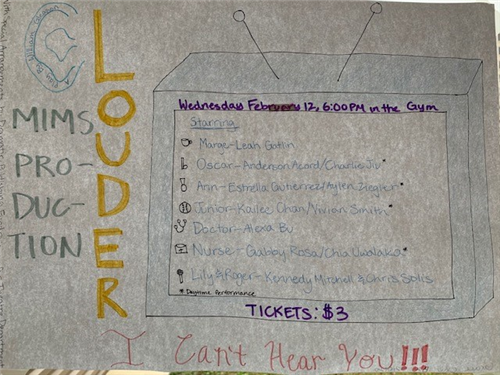 LOUDER
MIMS
PRO-
DUC-
TION
Wednesday February 12, 6:00PM in the Gym
Starring
Marge-Leah Gatlin
Oscar-Anderson Acord/Charlie Jiu*
Ann-Estrella Gutierrez/Aylen Ziegler*
Junior-Kailee Chan/Vivian Smith*
Doctor-Alexa Bu
Nurse-Gabby Rosa/Chia Uwalaka*
Lily & Roger-Kennedy Mitchell & Chris Solis
*Daytime performance
TICKETS: $3
I Can't Hear You!!!